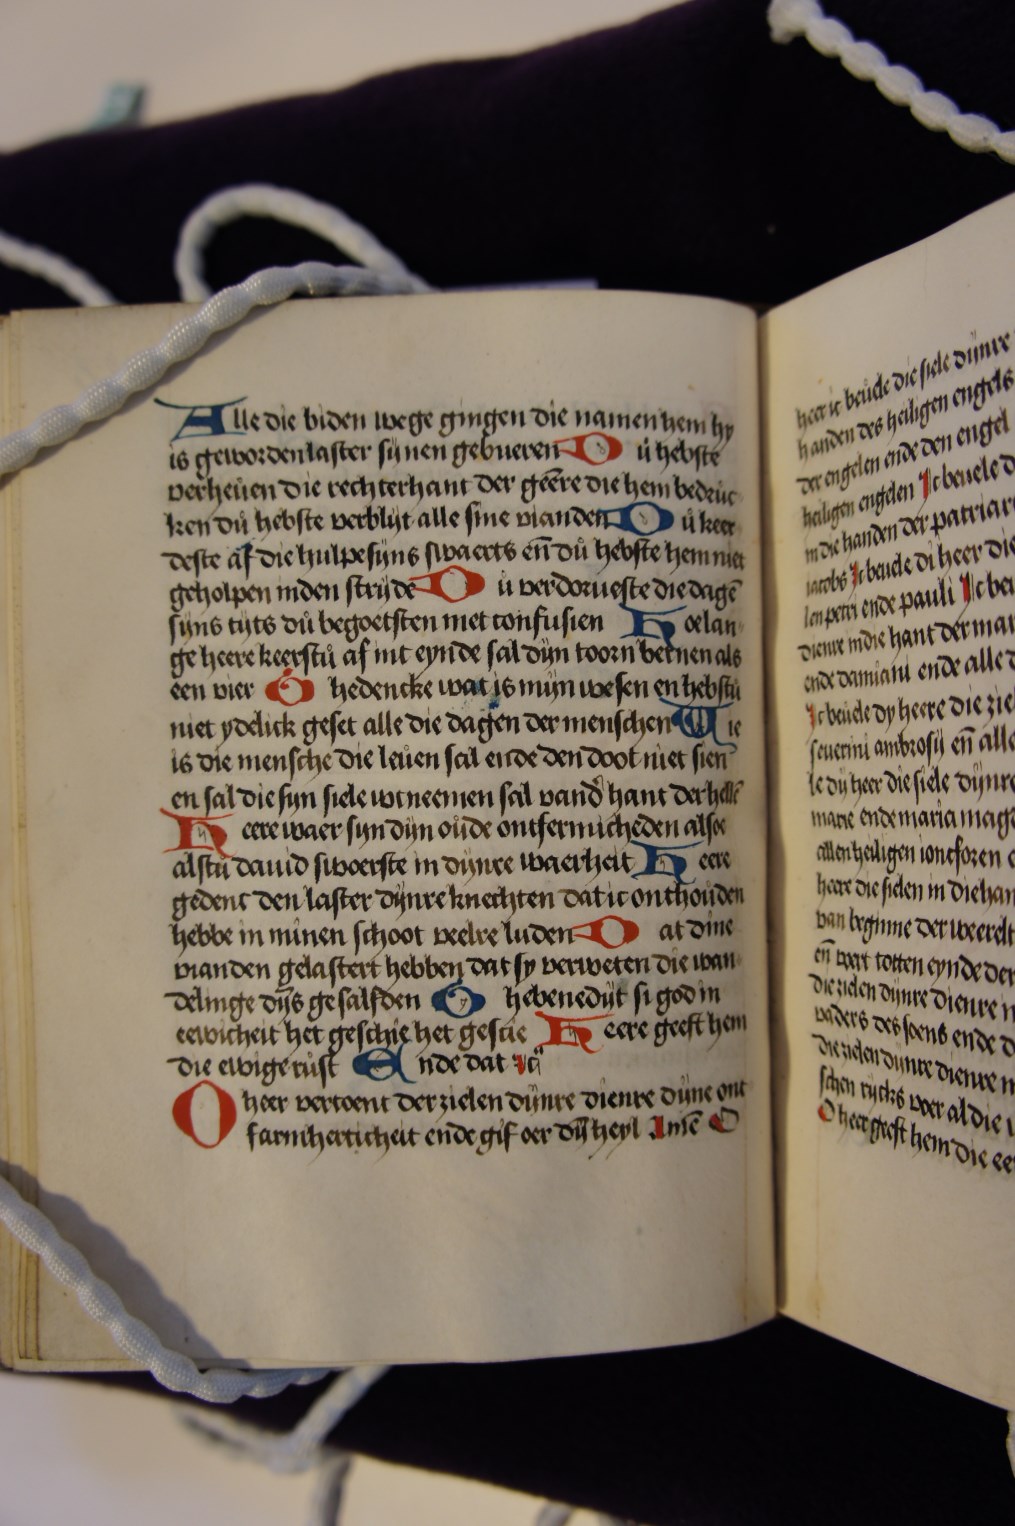 Alle die biden wege gingen die namen hem hy
is geworden laster sijnen gebueren Dů hebste
verheuen die rechterhant der geēre die hem bedruc
ken dů hebste verblijt alle sine vianden Dů keer
deste af die hulpe sijns swaerts eñ dů hebste hem niet
geholpen inden strijde Dů verdorueste die dagē
sijns tijts dů begoetsten met confusien Hoelan
ge heere keerstů af int eynde sal dijn toorn bernen als
een vier Ghedencke wat is mijn wesen en hebstu
niet ydelick geset alle die dagen der menschen Wie
is die mensche die leuen sal ende den doot niet sien
en sal die sijn siele wtneemen sal vand hant der hellē
Heere waer sijn dijn oůde ontfermicheden alsoe
alstů dauid swoerste in dijnre waerheit Heere
gedenc den laster dijnre knechten dat ic onthouden
hebbe in mijnen schoot veelre luden Dat dine
vianden gelastert hebben dat sy verweten die wan
delinge dijs gesalfden Ghebenedijt si god in
eewicheit het geschie het gescie Heere geeft hem
die ewige růst Ende dat
O heer vertoent der zielen dijnre dienre dijne ont
farmherticheit ende gif oer dijn heyl Amē O
heer ic beuele die siele dijnre
handen des heiligen engels
der engelen ende den engel
heiligen engelen Ic beuele d
in die handen der patriar
iacobs Ic beuele di heer die
len petri ende pauli Ic be
dienre in die hant der mar
ende damiani ende alle d
Ic beuele dy heere die zie
seuerini ambrosij eñ alle
le dij heer die siele dijnre
marie ende maria mag
allen heiligen ioncfrouen
heere die sielen in die han
van beginne der weerelt
eñ voert totten eynde der
die zielen dijnre dienre
vaders des soens ende d
die zielen dijnre dienre
schen rijcks voer al die
O heer geeft hem die ee